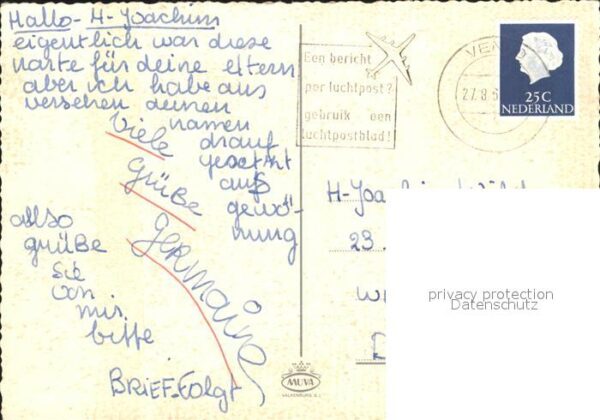 Hallo - H-Joachim
eigentlich war diese
karte für deine eltern
aber ich habe aus
versehen deinen
namen
drauf
gesetzt
auß
gewö-
nung
Viele
Grüße
Germaine
also
grüße
sie
von
mir
bitte
BRIEF-Folgt
Een bericht
per luchtpost?
gebruik een
luchtpostblad!
VE
27.8.6
25C
NEDERLAND
H-Joachim
23.
W
D
privacy protection
Datenschutz
MUVA
VALKENBURG